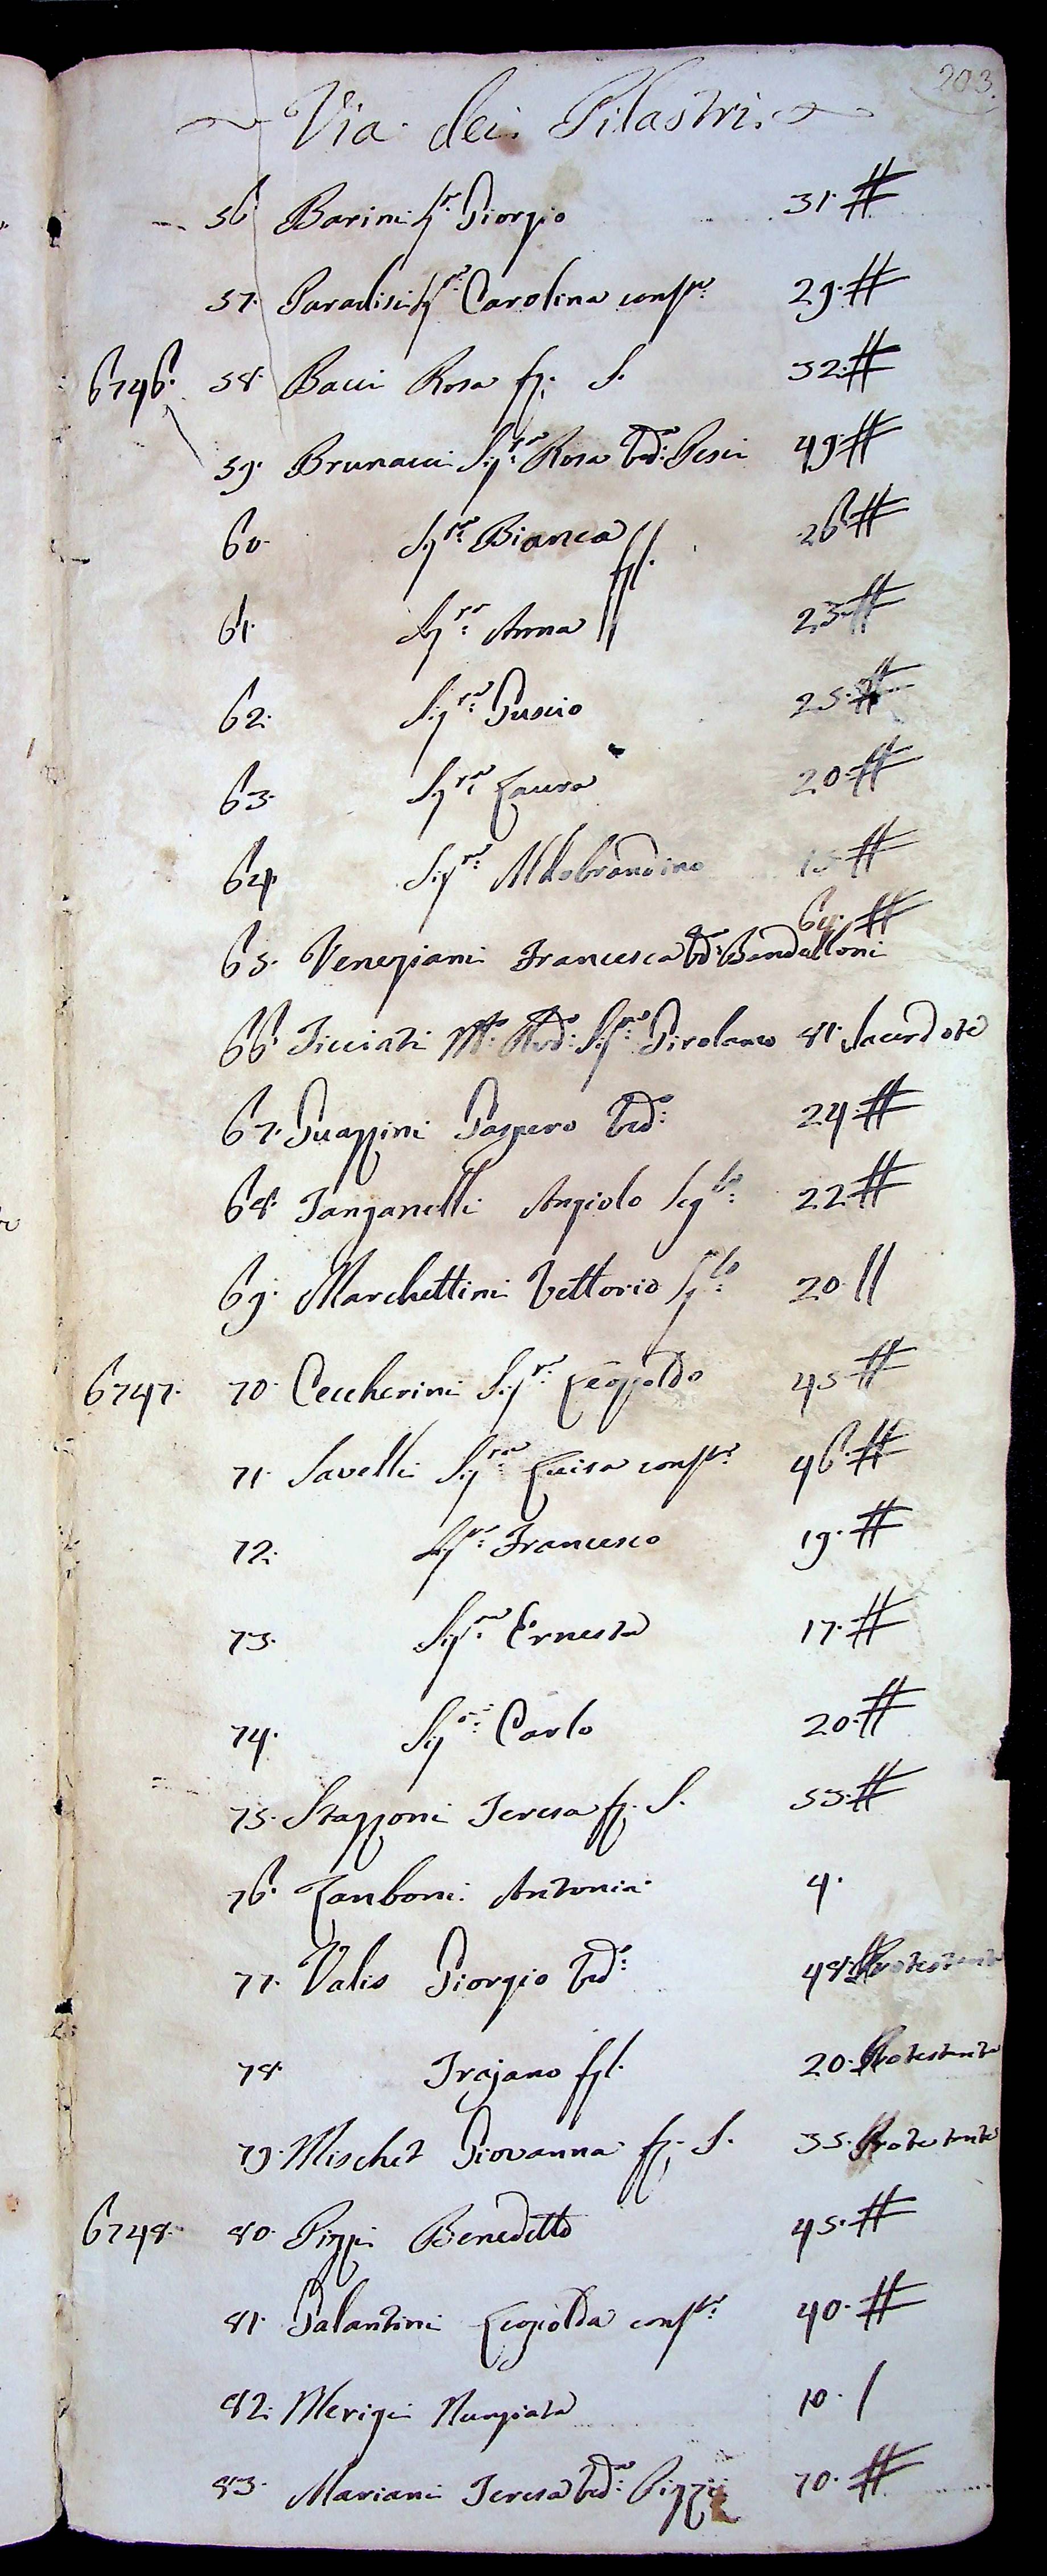 203.
Via dei Pilastri.
56 Barini Sr. Giorgio 31. #
57. Paradisi Sra. Carolina consrte. 29. #
6746. 58. Bacci Rosa fz. S. 32. #
59. Brunacci Sigra. Rosa Vda. Pesci 49. #
60. Sigra. Bianca 26. #
figl.
61. Sigra. Anna 23. #
62. Sigre. Guscio 25. #
63. Sigra. Laura 20. #
64. Sigre. Aldobrandino 15 #
64. #
65. Veneziani Francesca Vda. Bandelloni
66. Ticciati Mto. Rvdo. Sigre. Girolamo 81. Sacerdote
67. Guazzini Gaspero Vdo. 24. #
68. Tanganelli Angiolo Segto. 22 #
69. Marchettini Vettorio Sgto. 20 ||
6747. 70. Ceccherini Sigr. Leopoldo 45 #
71. Savelli Sigra. Luisa consrte. 46. #
72. Sigre. Francesco 19. #
73. Sigra. Ernesta 17. #
74. Sigr. Carlo 20. #
75. Stazzoni Teresa fz. S. 55. #
76. Zanboni Antonia 4.
77. Valis Giorgio Vdo. 48. Protestante
78. Trajano figl. 20. Protestante
79. Mischet Giovanna fz. S. 35. Protestante
6748. 80. Pizzi Benedetto 45. #
81. Galantini Leopolda consrte. 40. #
82. Merigi Nunziata 10. /
83. Mariani Teresa Vda. Pizzi 70. #